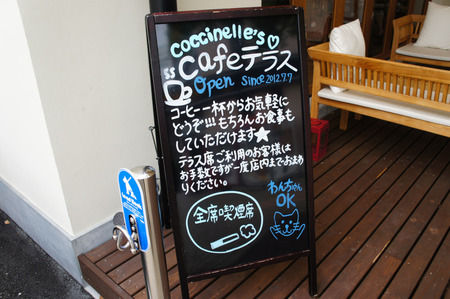 coccinelle's♡
Cafeテラス
Open Since 2012.7.7
コーヒー一杯からお気軽に
どうぞ!!! もちろんお食事も
していただけます★
テラス席ご利用のお客様は
お手数ですが一度店内までおまわ
りください。
わんちゃん
OK
全席喫煙席